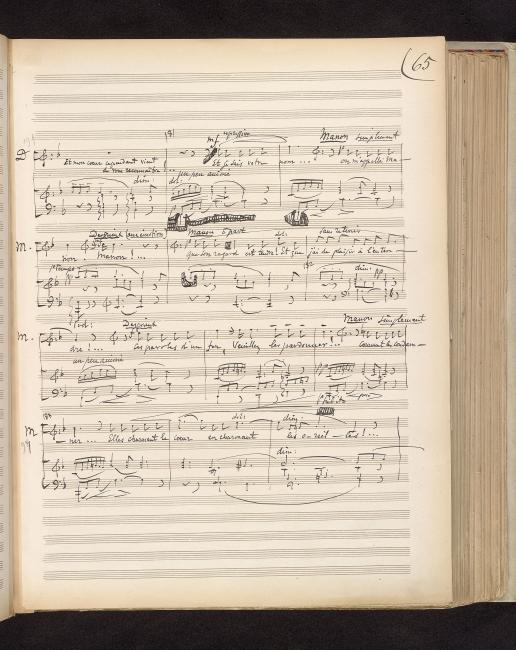 65
mf expressif
Manon simplement
D
Et mon cœur cependant vient
de vous reconnaître ! ...
Et je sais votre nom ... !
On m'appelle Ma-
dim:
dol:
un peu animé
Des Grieux (avec émotion)
Manon à part
dol:
sans retenir
M.
non !
Manon ! ...
Que son regard est tendre ! Et que j'ai du plaisir à l'enten-
pp
dim:
pp
Des Grieux
Manon simplement
M.
dre ! ....
Ces paroles d'un fou, Veuillez les pardonner ... !
Comment les condam-
un peu animé
dol:
dim:
M
ner ... Elles charment le cœur en charmant les oreil - les ! ...
dim: